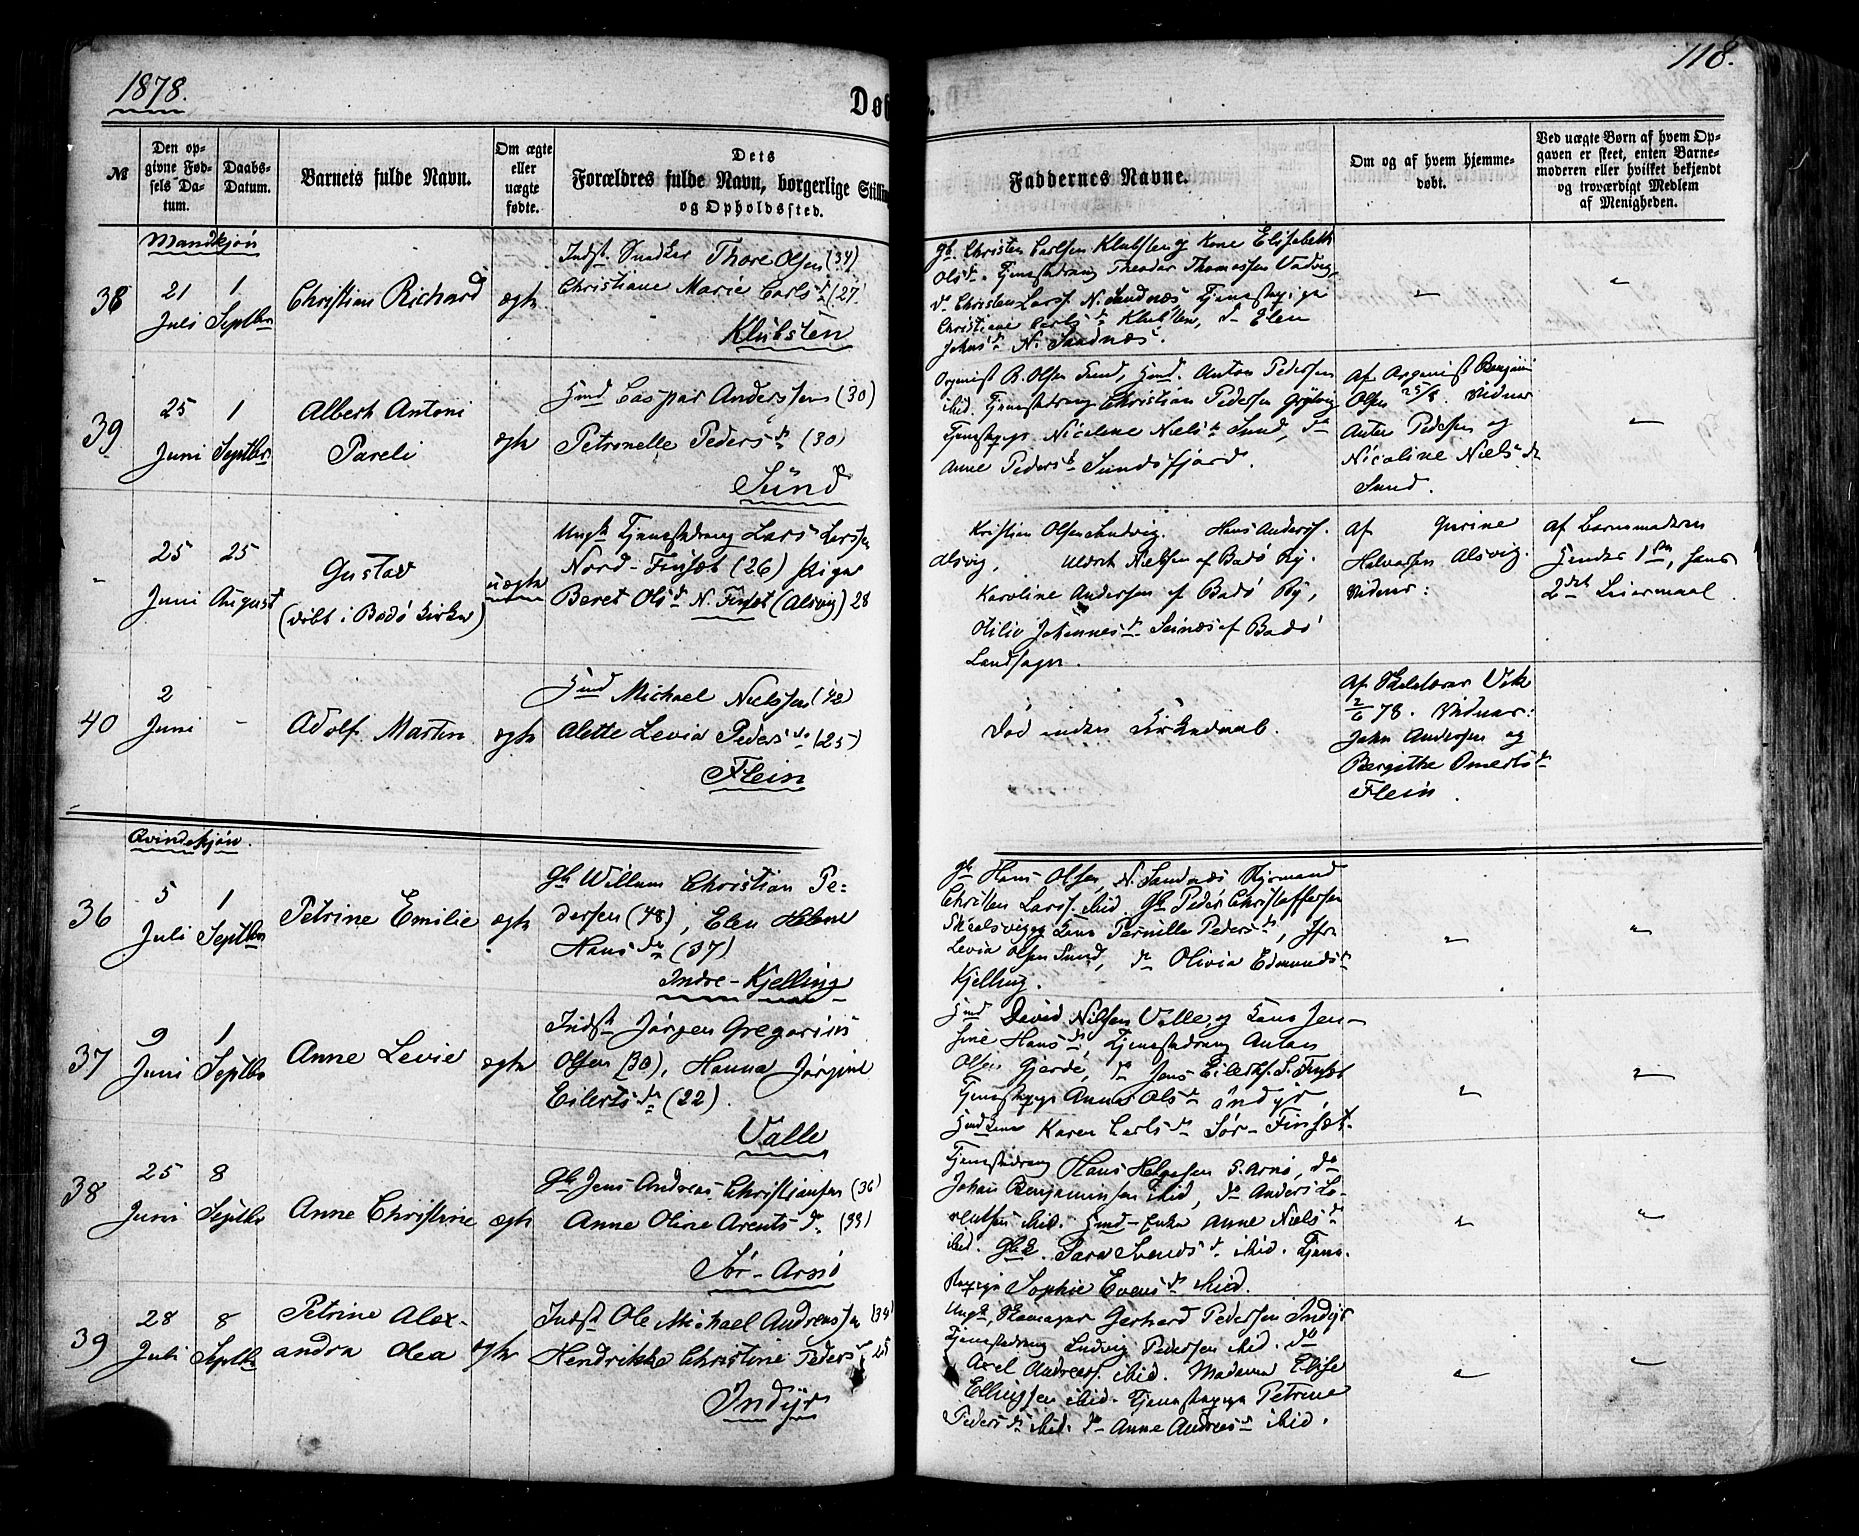 1878.
118.
Døbte.
№
Den op-
givne Fød-
sels Da-
tum.
Daabs-
Datum.
Barnets fulde Navn.
Om ægte
eller
uægte
fødte.
Dets
Forældres fulde Navn, borgerlige
og Opholdssted.
Faddernes Navne.
Om og af hvem hjemme-
døbt.
Ved uægte Børn af hvem Op-
gaven er skeet, enten Barne-
moderen eller hvilket bekjendt
og troværdigt Medlem
af Menigheden.
Mandkjøn
38
21
Juli
1
Septbr
Christian Richard
ægte
Indst Snedker Thore Olsen (34)
Christiane Marie Carlsdr (27)
Klubsten
Gb. Christen Carlsen Klubsten og Kone Elisabeth
Olsdr. Tjenestedreng Theodor Thomassen Vadvig,
do Christen Larss. N. Sandnæs, Tjenestepige
Christiane Carlsdr Klubsten, do Elen
Johnsdr N. Sandnæs.
"
"
39
25
Juni
1
Septbr
Albert Antoni
Pareli
ægte
Hmd Caspar Anderssen (30)
Petronelle Pedersdr (30)
Sund
Organist B. Olsen Sund, Hmd. Anton Pedersen
ibid. Tjenestedreng Christian Pedersen
Tjenestepige Nicoline Nielsdr Sund, do
Anne Pedersdr Sundsfjord.
Af Organist Benjamin
Olsen 25/8. Vidner
Anton Pedersen og
Nicoline Nielsdr
Sund.
"
"
25
Juni
25
August
Gustav
(døbt i Bodø Kirke)
uægte
Ungk Tjenestedreng Lars Larsen
Nord-Finsæt (26) Pige
Beret Olsdr N. Finsæt (Alsvig) 28
Kristian Olsen Sandvig. Hans Anderss.
Alsvig, Uldrik Nielsen af Bodø By.
Karoline Andersen af Bodø By,
Otilie Johannesdr Seines af Bodø
Landsogn.
Af Gurine
Halvorsen Alsvig.
Vidner:
Af Barnemoderen
Hendes 1ste, hans
2det Leiermaal.
40
2
Juni
-
Adolf Martin
ægte
Hmd Michael Nielssen (42)
Alette Levia Pedersdr (25)
Flein
Død inden Kirkedaab.
Af Skolelærer Vik
2/6 78. Vidner:
John Andersen og
Bergithe Omertsdr
Flein.
Qvindekjøn.
36
5
Juli
1
Septbr
Petrine Emilie
ægte
Gb Willum Christian Pe-
dersen (48), Elen Helene
Hansdr (37)
Indre-Kjelling
Gb Hans Olsen, N. Sandnæs Styrmand
Christen Larss. ibid. Gb Peder Christoffersen
Skaalsvig og Kone Pernille Pedersdr, Jfr.
Levia Olsen Sund, do Olivia Edmundsdr
Kjelling.
"
"
37
9
Juni
1
Septbr
Anne Levie
ægte
Indst Jørgen Gregorius
Olsen (30), Hanna Jørgine
Eilertsdr (22).
Valle
Hmd David Nilsen Valle og Kone Jen-
sine Hansdr, Tjenestedreng Anton
Olsen Gjerde, do Jens Eilertss. S. Finsæt
Tjenestepige Anne Olsdr Indyr
Hmd Kone Karen Carlsdr Sør-Finsæt.
"
"
38
25
Juni
8
Septbr
Anne Christine
ægte
Gb Jens Andreas Christiansen (36)
Anne Oline Arentsdr (33)
Sør-Arnø
Tjenestedreng Hans Helgesen S. Arnø, do
Johan Benjaminsen ibid, do Anders Lo-
rentsen ibid. Hmd-Enke Anne Nielsdr
ibid. GbE. Sara Svendsdr ibid. Tjene-
stepige Sophie Evensdr ibid.
"
"
39
28
Juli
8
Septbr
Petrine Alex-
andra Olea
ægte
Indst Ole Michael Andreassen (34)
Hendrikke Christine Pedersdr 25
Indyr
Ungk, Skomager Gerhard Pedersen Indyr
Tjenestedreng Ludvig Pedersen ibid. do
Axel Andreass. ibid. Madame Elise
Ellingsen ibid. Tjenestepige Petrine
Pedersdr ibid. do Anne Andreasdr ibid.
"
"